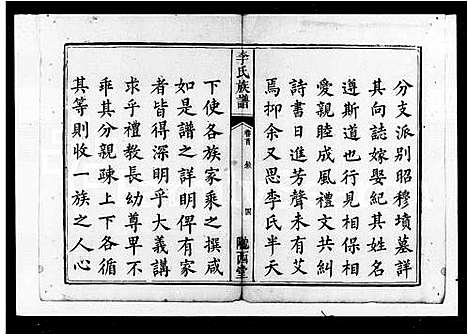 分支派别昭穆墳墓詳
其向誌嫁娶紀其姓名
遵斯道也行見相保相
愛親睦成風禮文共糾
詩書日進芳聲未有艾
焉抑余又思李氏半天
李氏族譜
卷首
隴西堂
下使各族家乘之撰咸
如是譜之詳明俾有家
者皆得深明乎大義講
求乎禮教長幼尊卑不
乖其分親疎上下各循
其等則收一族之人心